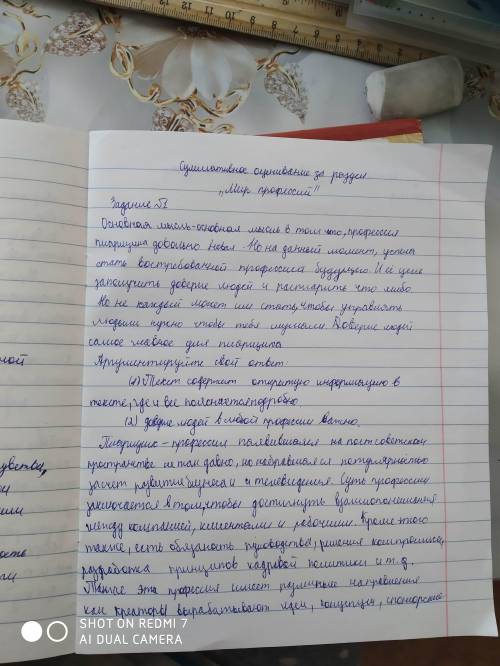 Суммативное оценивание за раздел
"Мир профессий"
Задание №1
Основная мысль-основная мысль в том что, профессия
пиарщика довольно новая. Но на данный момент, успела
стать востребованной профессией будущего. И её цель
заполучить доверие людей и распиарить что либо.
Но не каждый может им стать, чтобы управлять
людьми нужно чтобы тебя слушали. Доверие людей
самое главное для пиарщика.
Аргументируйте свой ответ:
(1) Текст содержит открытую информацию в
тексте, где и все подробно.
(2) доверие людей в любой профессии важно.
Пиарщик - профессия появившаяся на постсоветском
пространстве не так давно, но набравшаяся популярностью
засчет развития бизнеса и телевидения. Суть профессии
заключается в том, чтобы достигнуть взаимопонимания
между компанией, клиентами и рабочими. Кроме этого
также, есть обязаность руководства, решения компромиса,
разработка принципов кадровой политики и т.д.
Также эта профессия имеет различные направления
как креаторы вырабатывают идеи, концепции,
SHOT ON REDMI 7
AI DUAL CAMERA